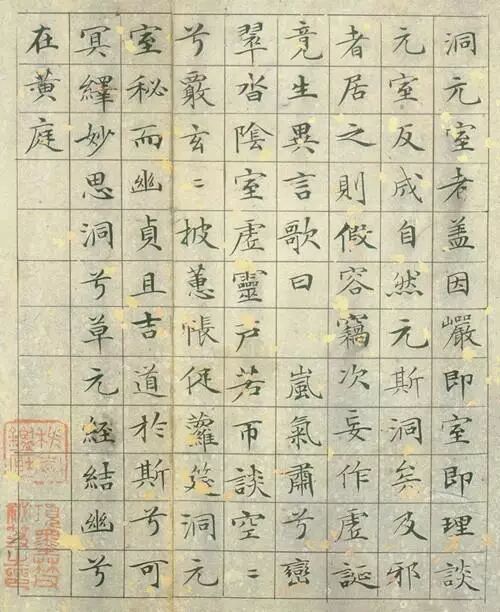 洞元室者盖因巖即室即理談
元室反成自然元斯洞矣及邪
者居之則假容竊次妄作虚誕
竞生異言歌曰 嵐氣肅兮巒
翠沓陰室虚靈戶若帀談空〻
兮覈玄〻披蕙帳促蘿筵洞元
室秘而幽貞且吉道於斯兮可
冥繹妙思洞兮草元經結幽兮
在黃庭
項墨林父
秘笈之印